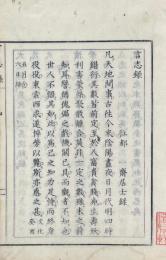 言志錄
江都 一齋居士錄
凡天地間事古往今來陰陽晝夜日月代明四時
錯行其數皆前定至於人富貴貧賤死生壽殀
利害榮辱聚散離合莫非一定之數殊未之前
知耳譬猶傀儡之戲機關已具而觀者不知也
世人不悟其如此以爲己之知力足恃而終身
役役東索西求遂悴勞以斃斯亦惑之甚 文化十癸酉
五月念
六日錄